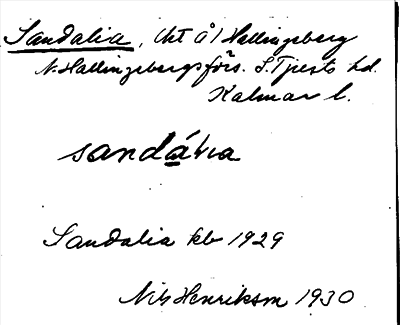 Sandalia, lht å 1 Hallingeberg
N. Hallingebergs förs. S. Tjusts hd.
Kalmar l.
sandália
Sandalia kb 1929
Nils Henriksson 1930